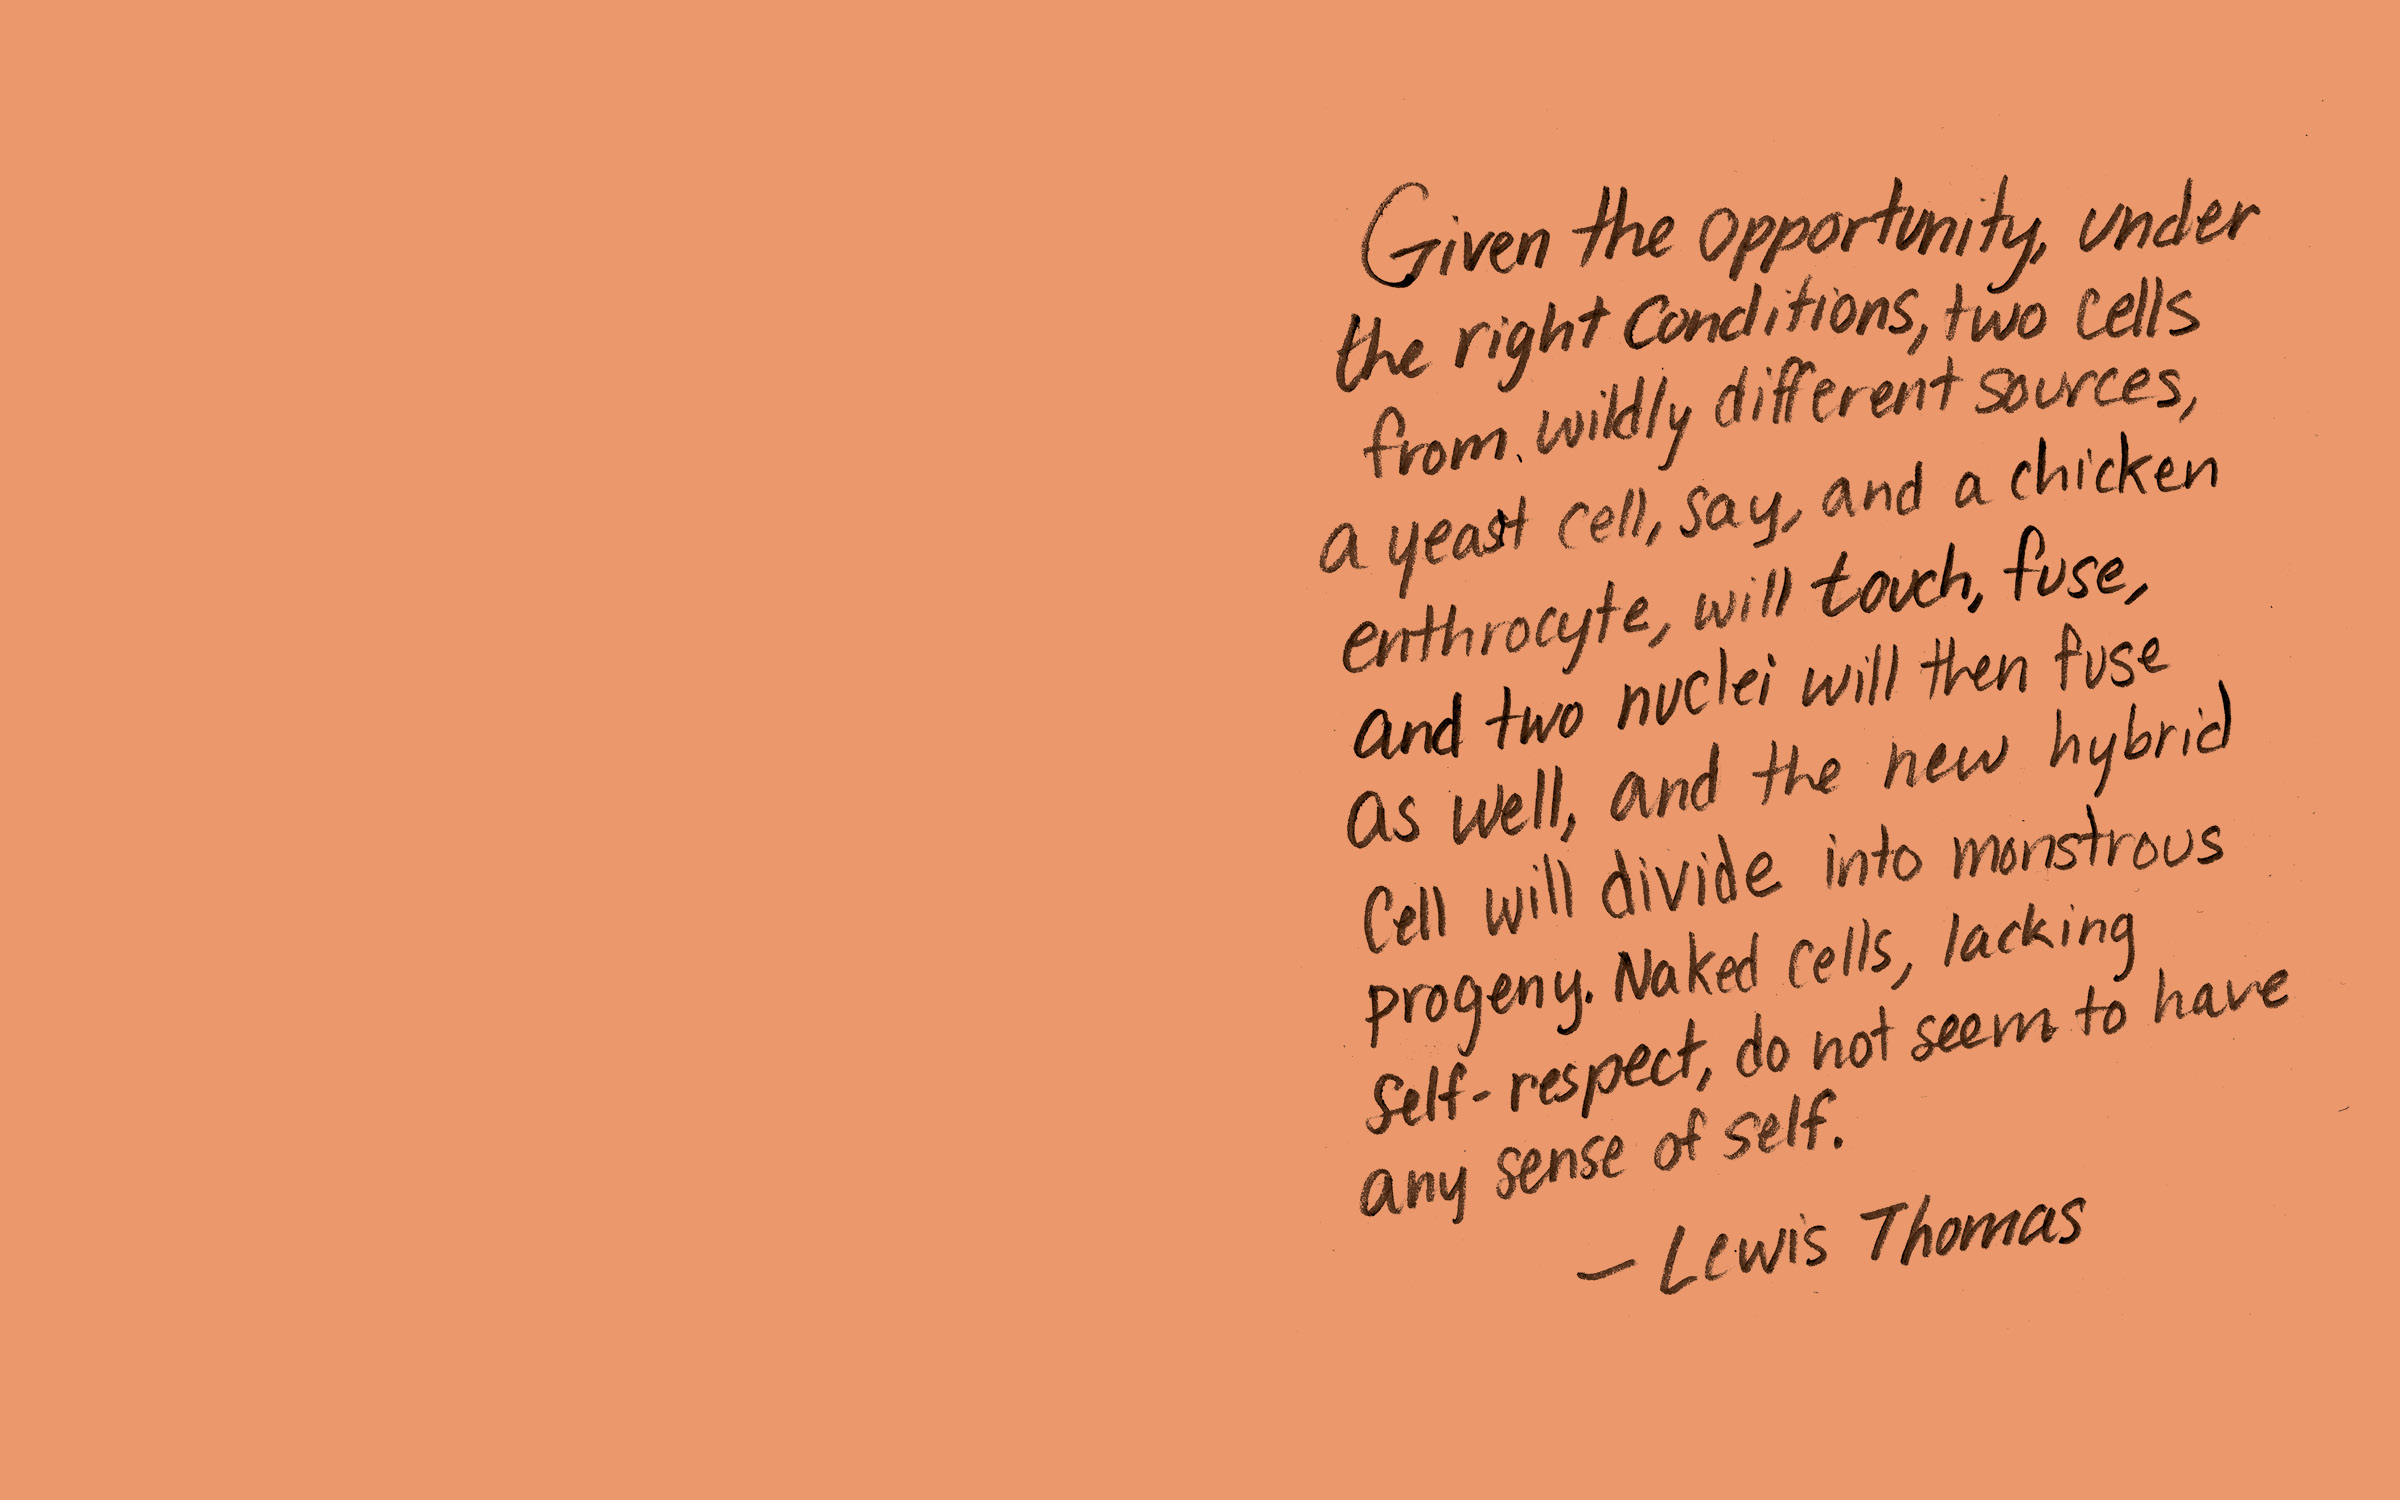 Given the opportunity, under
the right Conditions, two cells
from wildly different sources,
a yeast cell, say, and a chicken
enthrocyte, will touch, fuse,
and two nuclei will then fuse
as well, and the new hybrid
Cell will divide into monstrous
progeny. Naked cells, lacking
Self-respect, do not seem to have
any sense of self.
— Lewis Thomas